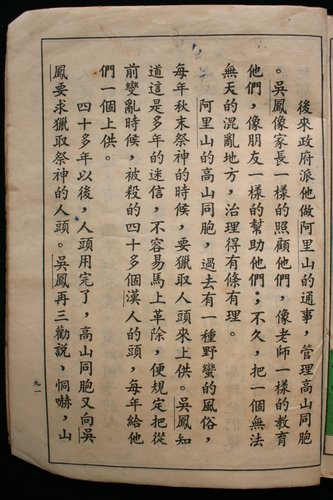 後來政府派他做阿里山的通事，管理高山同胞
。吳鳳像家長一樣的照顧他們，像老師一樣的教育
他們，像朋友一樣的幫助他們；不久，把一個無法
無天的混亂地方，治理得有條有理。
阿里山的高山同胞，過去有一種野蠻的風俗，
每年秋末祭神的時候，要獵取人頭來上供。吳鳳知
道這是多年的迷信，不容易馬上革除，便規定把從
前變亂時候，被殺的四十多個漢人的頭，每年給他
們一個上供。
四十多年以後，人頭用完了，高山同胞又向吳
鳳要求獵取祭神的人頭。吳鳳再三勸說、恫嚇，山
九一